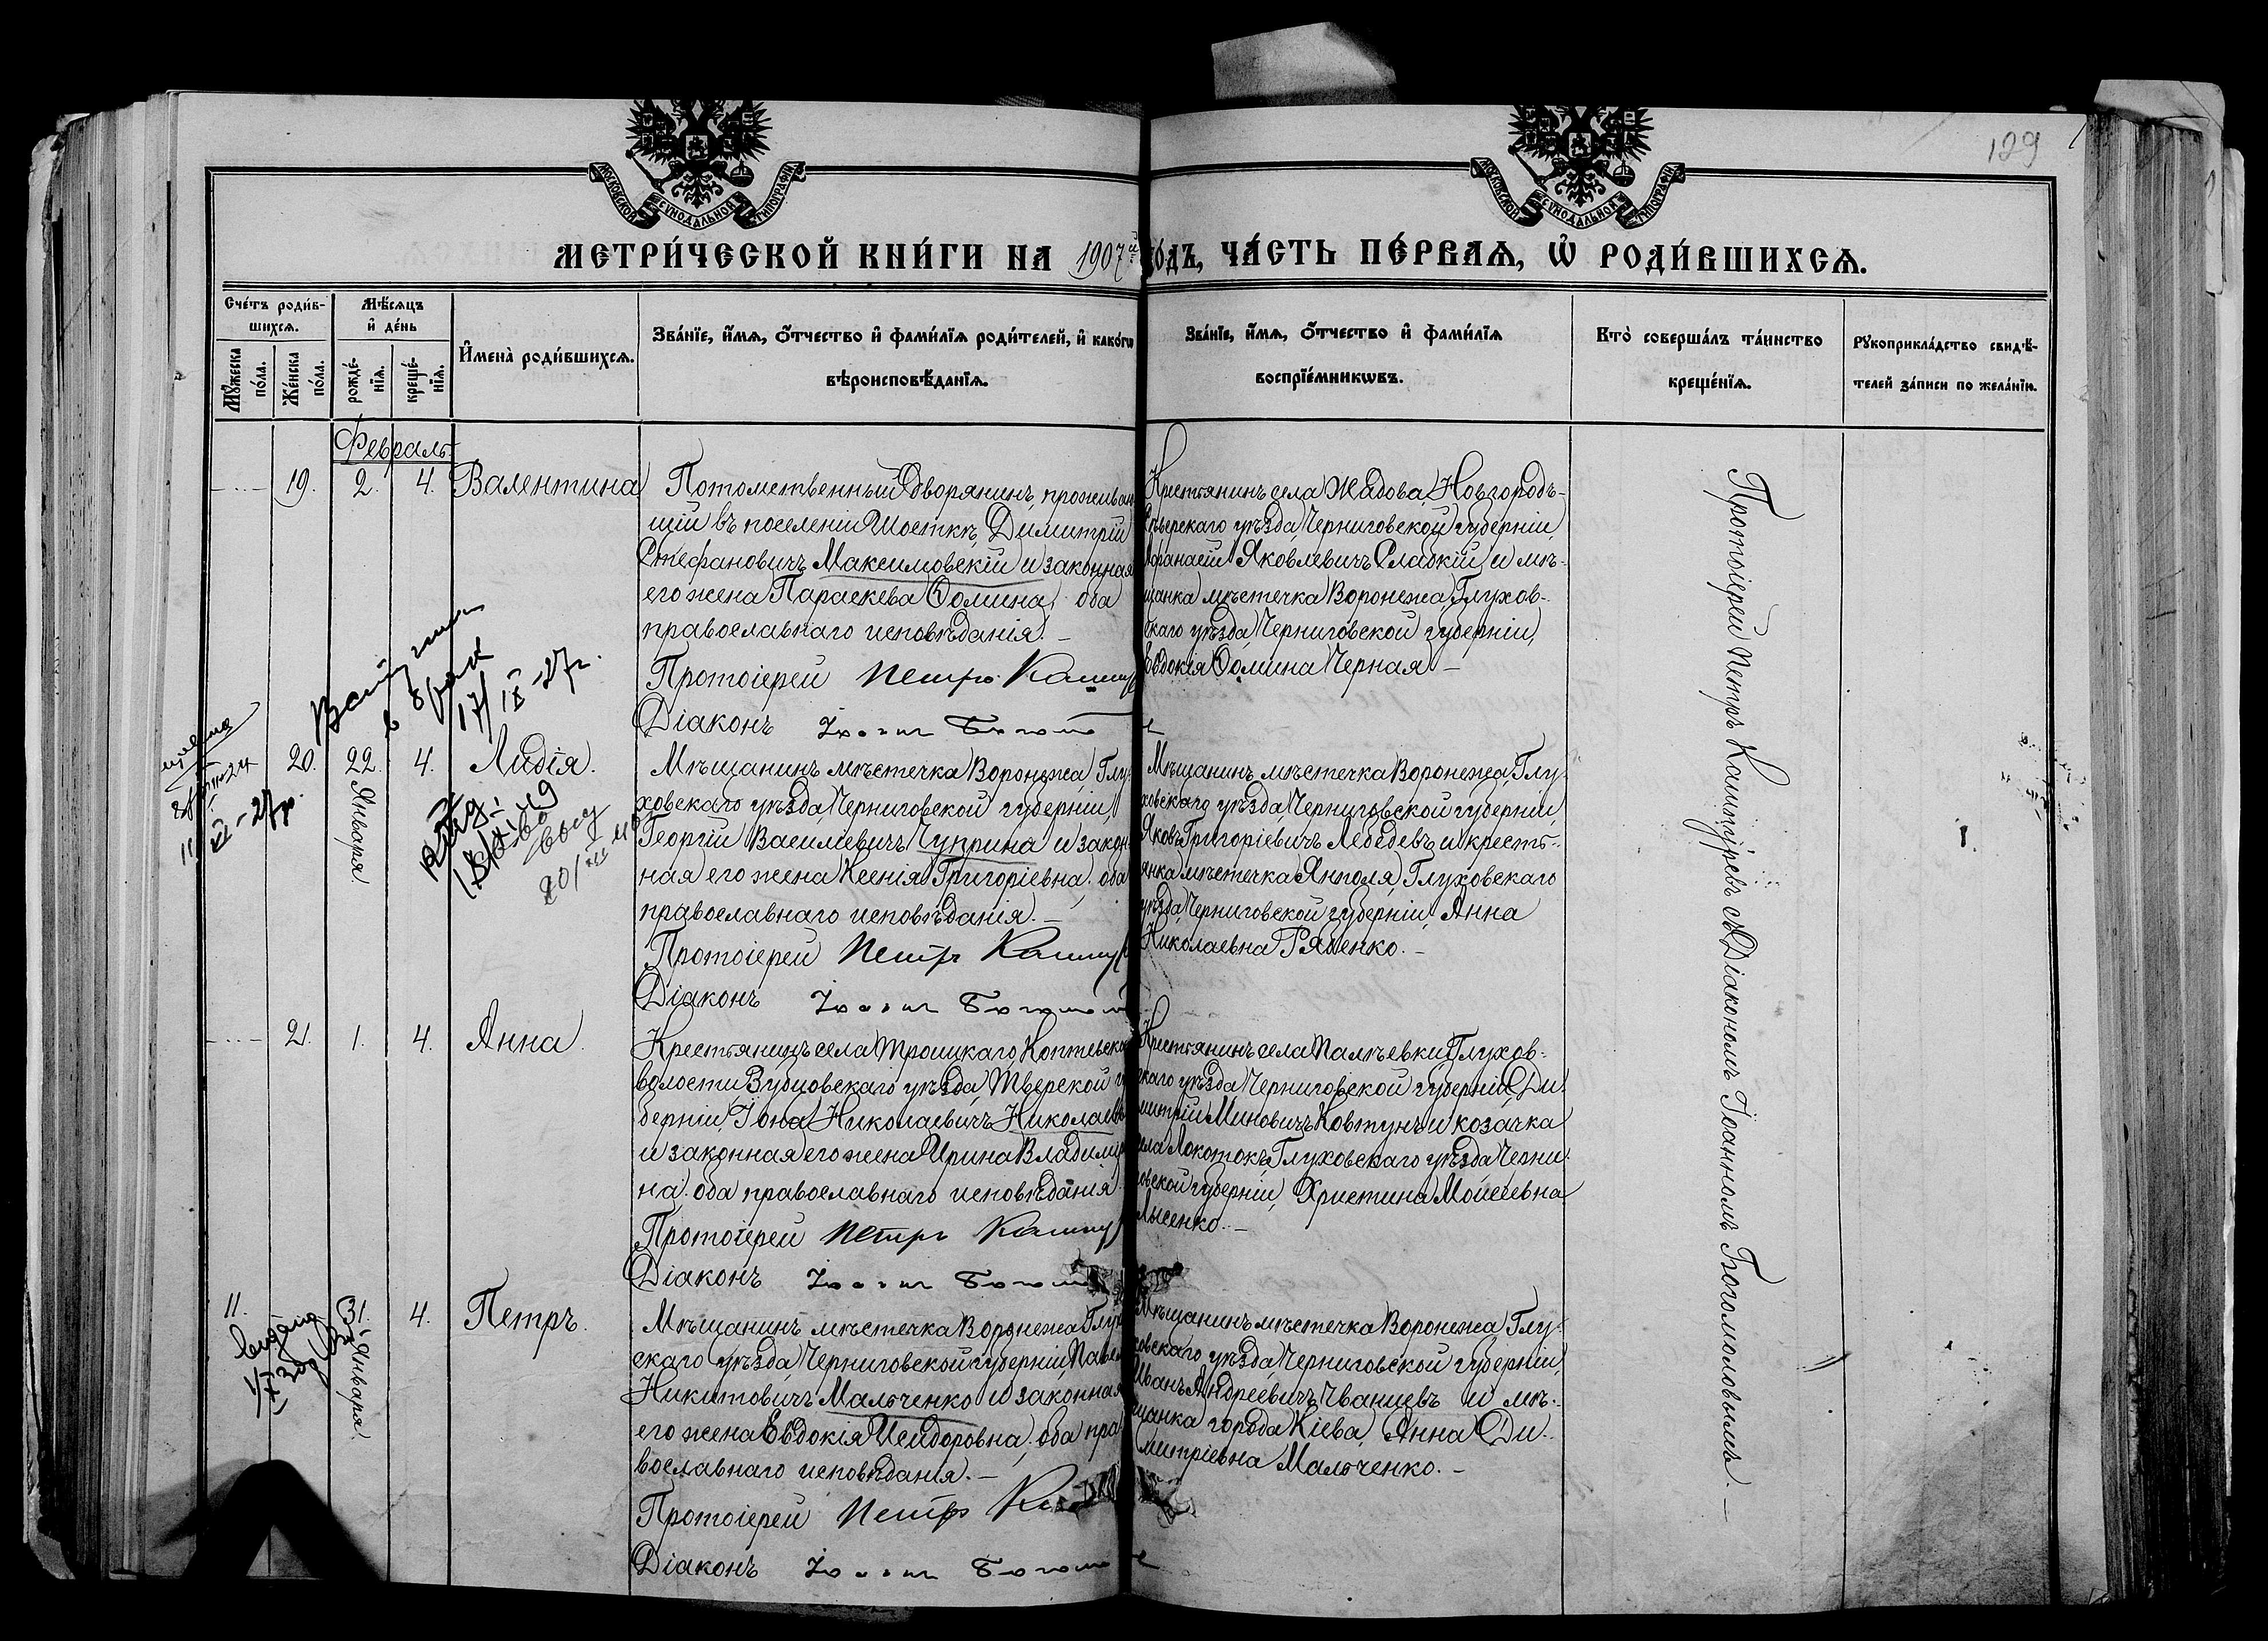 129
МОСКОВСКОЙ СѴНОДАЛЬНОЙ ТИПОГРАФІИ
МОСКОВСКОЙ СѴНОДАЛЬНОЙ ТИПОГРАФІИ
МЕТРИ́ЧЕСКОЙ КНИ́ГИ НА 1907й го́дъ, ЧА́СТЬ ПЕ́РВАѦ, Ѡ҆ РОДИ́ВШИХСѦ.
Сче́тъ роди́в-
шихсѧ.
Мꙋ́жеска по́ла.
Же́нска по́ла.
Мѣ́сѧцъ
и҆ де́нь
рожде́-нїѧ.
креще́-нїѧ.
И҆мена̀ роди́вшихсѧ.
Зва́нїе, и҆́мѧ, ѻ҆́тчество и҆ фами́лїѧ роди́телей, и҆ како́гѡ
вѣроисповѣ́данїѧ.
Зва́нїе, и҆́мѧ, ѻ҆́тчество и҆ фами́лїѧ
воспрїе́мникѡвъ.
Кто̀ соверша́лъ та́инство
креще́нїѧ.
Рꙋкоприкла́дство свидѣ́-
телей за́писи по жела́нїю.
Февраль
19. 2. 4. Валентина
Потомственный дворянинъ, проживаю
щій въ поселеніи Шосткѣ, Димитрій
Стефановичъ Максимовскій и законная
его жена Параскева Ѳомина, оба
православнаго исповѣданія. –
Протоіерей Петръ
Діаконъ
Крестьянинъ села Жадова, Новгородъ-
Сѣверскаго уѣзда, Черниговской губерніи,
Афанасій Яковлевичъ Сладкій и мѣ-
щанка мѣстечка Воронежа, Глухов-
скаго уѣзда, Черниговской губерніи,
Евдокія Ѳомина Черная –
в брак
17/IX-27г.
20. 22. Января 4. Лидія.
Мѣщанинъ мѣстечка Воронежа, Глу-
ховскаго уѣзда, Черниговской губерніи,
Георгій Василіевичъ Чуприна и закон-
ная его жена Ксенія Григоріевна, оба
православнаго исповѣданія. –
Протоіерей Петръ
Діаконъ
Мѣщанинъ мѣстечка Воронежа, Глу-
ховскаго уѣзда, Черниговской губерніи,
Яковъ Григоріевичъ Лебедевъ и кресть-
янка мѣстечка Янполя, Глуховскаго
уѣзда, Черниговской губерніи, Анна
Николаевна Рябенко. –
21. 1. 4. Анна.
Крестьянинъ села Троицкаго, Коптевской
волости, Зубцовскаго уѣзда, Тверской гу
берніи, Іона Николаевичъ Николаевъ
и законная его жена Ирина Владимір
на, оба православнаго исповѣданія
Протоіерей Петръ
Діаконъ
Крестьянинъ села Палѣевки, Глухов-
скаго уѣзда, Черниговской губерніи, Ди-
митрій Миновичъ Ковтунъ и козачка
села Локотокъ, Глуховскаго уѣзда, Черни-
говской губерніи, Христина Моисеевна
Лысенко. –
11. 31. Января. 4. Петръ.
Мѣщанинъ мѣстечка Воронежа, Глухов
скаго уѣзда, Черниговской губерніи, Павелъ
Никитовичъ Мальченко и законная
его жена Евдокія Исидоровна, оба пра
вославнаго исповѣданія. –
Протоіерей Петръ
Діаконъ
Мѣщанинъ мѣстечка Воронежа, Глу-
ховскаго уѣзда, Черниговской губерніи,
Иванъ Андреевичъ Иванцевъ и мѣ-
щанка города Кіева, Анна Ди-
митріевна Мальченко. –
Протоіерей Петръ Кашпуревъ съ Діакономъ Іоанномъ Богомоловымъ. –